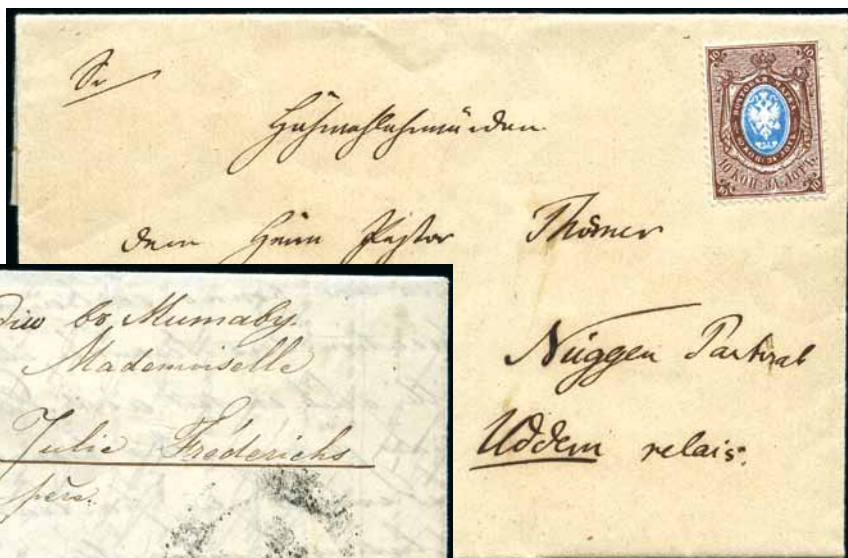 Sr
Hochwohlehrwürden
dem Herrn Pastor Thörner
Nüggen Pastorat
Uddern relais.
10 КОП. ЗА ЛОТЪ.
Mademoiselle
Julie Frederichs